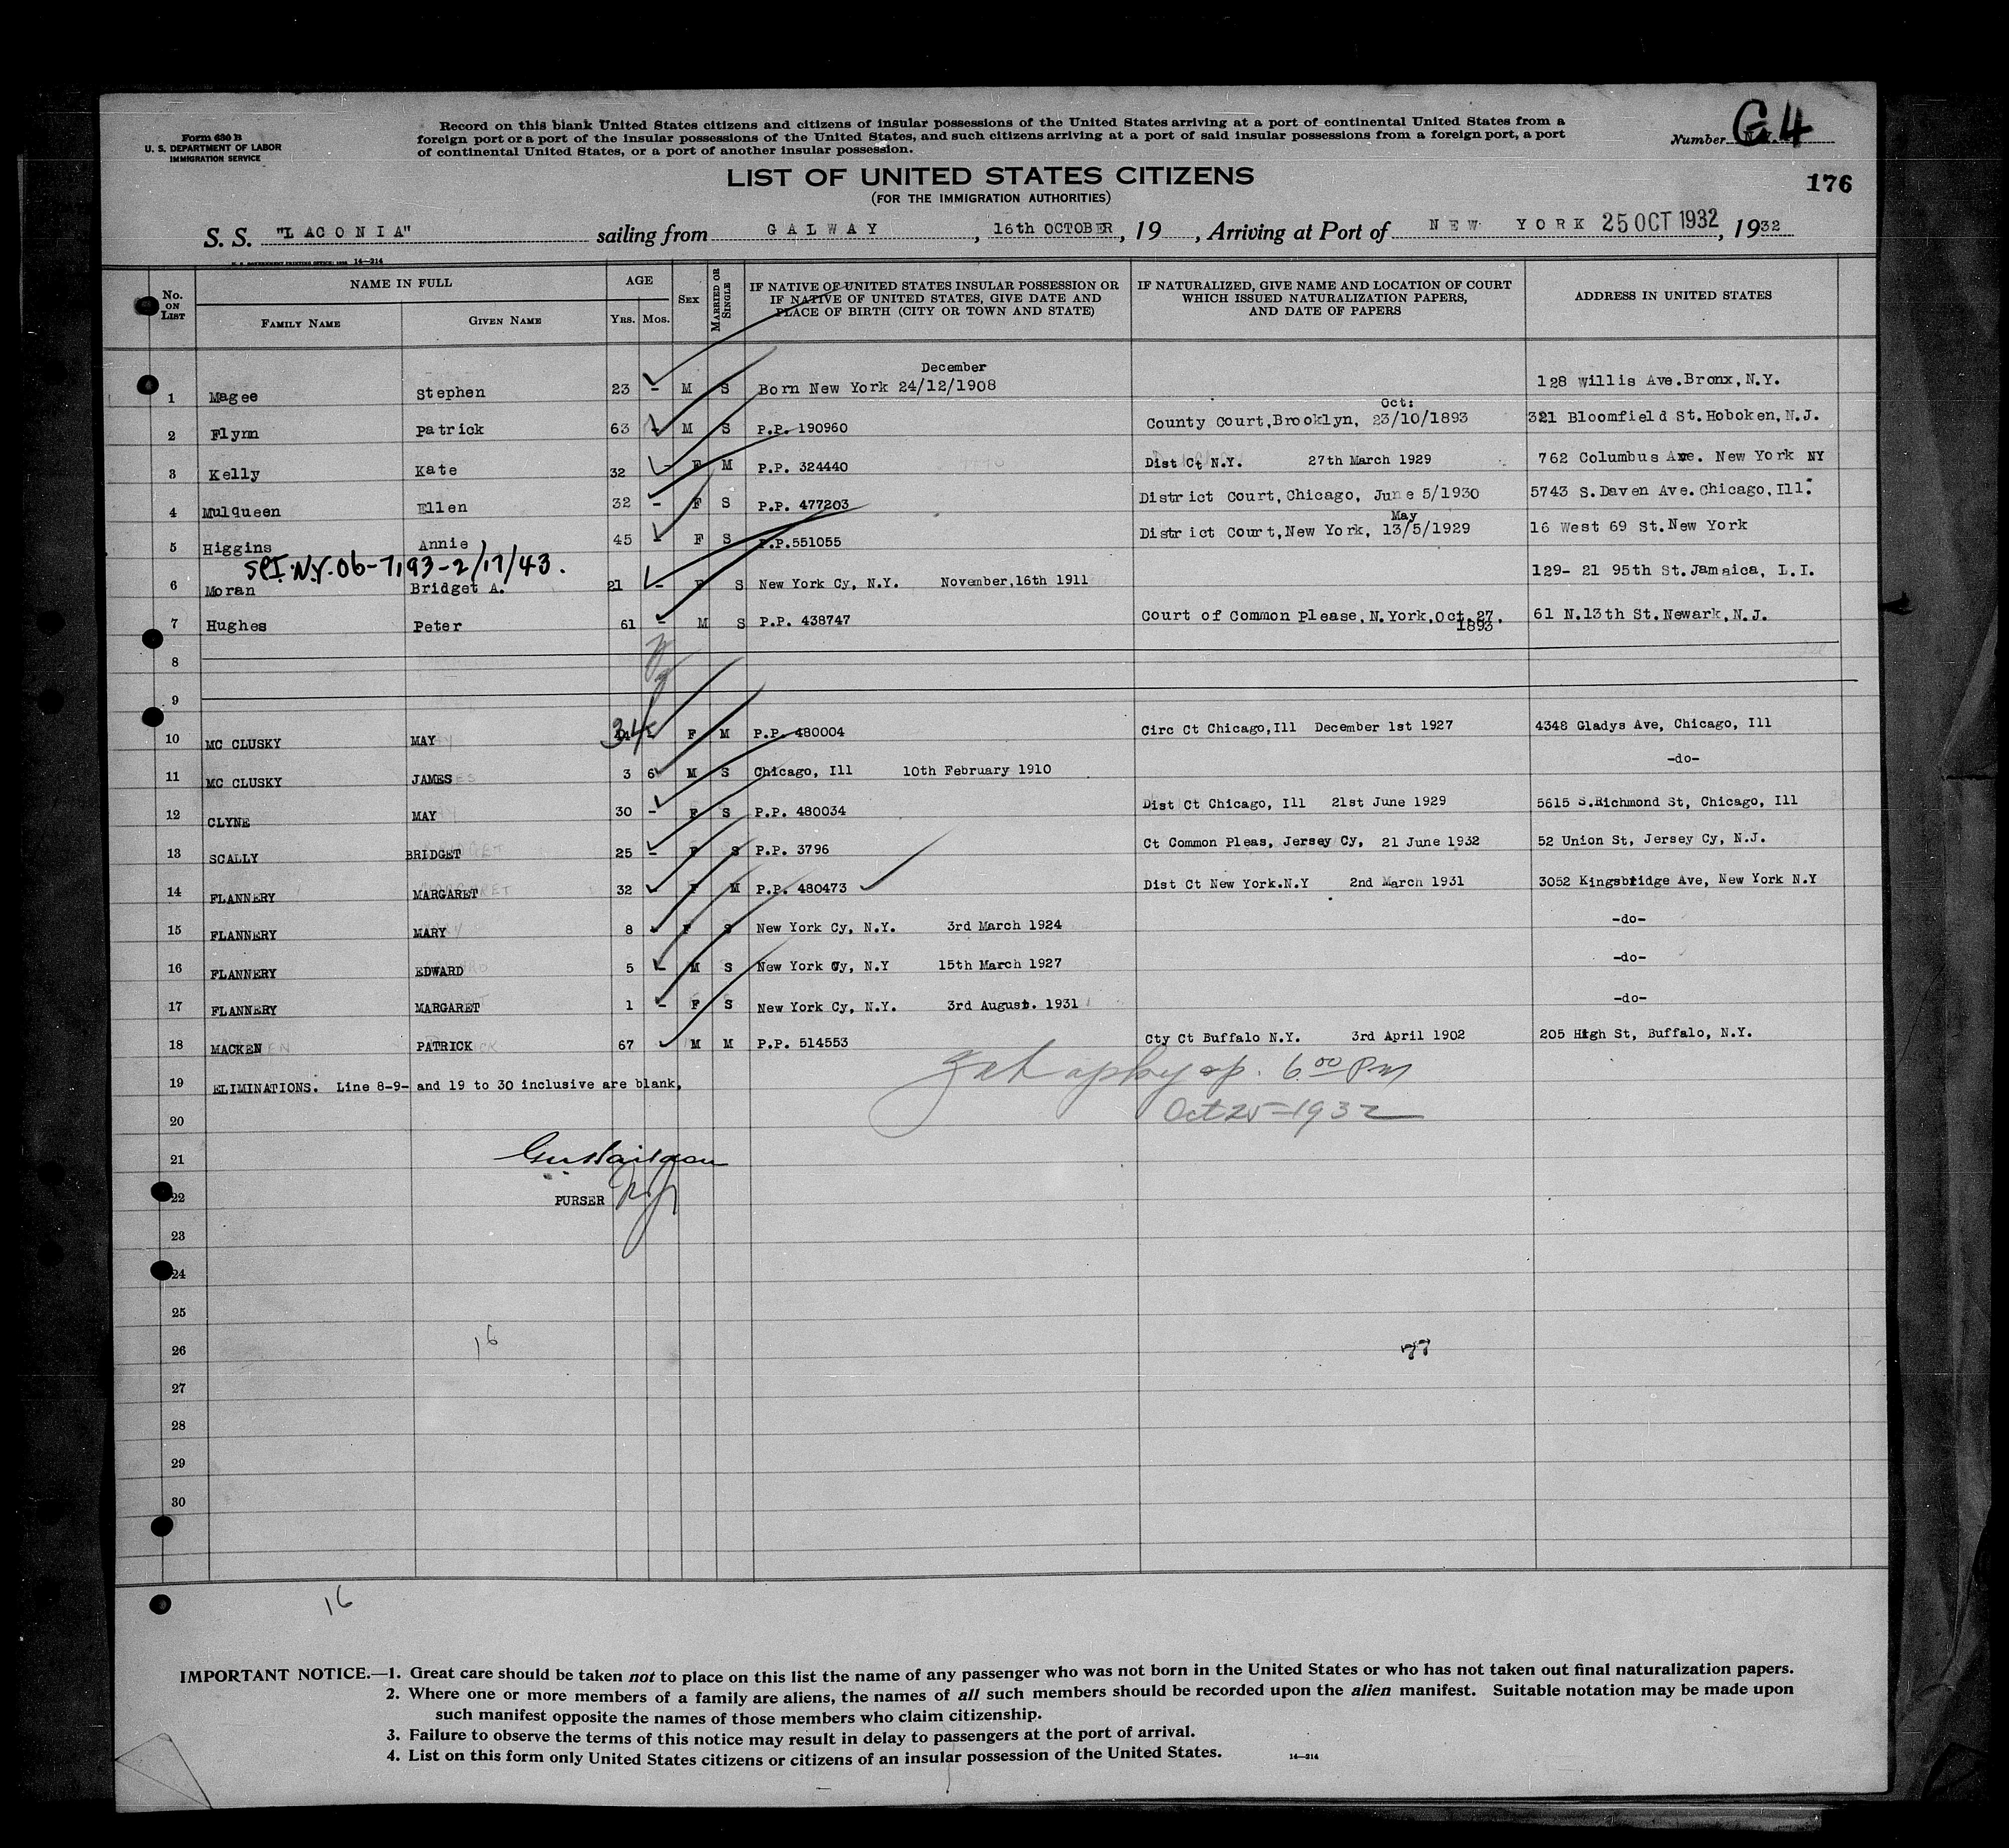 Form 630 B
U. S. DEPARTMENT OF LABOR
IMMIGRATION SERVICE
Record on this blank United States citizens and citizens of insular possessions of the United States arriving at a port of continental United States from a
foreign port or a port of the insular possessions of the United States, and such citizens arriving at a port of said insular possessions from a foreign port, a port
of continental United States, or a port of another insular possession.
Number G4
176
LIST OF UNITED STATES CITIZENS
(FOR THE IMMIGRATION AUTHORITIES)
S. S. "LACONIA" sailing from GALWAY, 16th OCTOBER, 19 , Arriving at Port of NEW YORK 25 OCT 1932, 1932
14—214
No. ON LIST
NAME IN FULL
FAMILY NAME GIVEN NAME
AGE
YRS. MOS.
SEX
MARRIED OR SINGLE
IF NATIVE OF UNITED STATES INSULAR POSSESSION OR
IF NATIVE OF UNITED STATES, GIVE DATE AND
PLACE OF BIRTH (CITY OR TOWN AND STATE)
IF NATURALIZED, GIVE NAME AND LOCATION OF COURT
WHICH ISSUED NATURALIZATION PAPERS,
AND DATE OF PAPERS
ADDRESS IN UNITED STATES
December
1 Magee Stephen 23 - M S Born New York 24/12/1908 128 Willis Ave.Bronx, N.Y.
Oct:
2 Flynn Patrick 63 - M S P.P. 190960 County Court,Brooklyn, 23/10/1893 321 Bloomfield St.Hoboken,N.J.
3 Kelly Kate 32 - F M P.P. 324440 Dist Ct N.Y. 27th March 1929 762 Columbus Ave. New York NY
4 Mulqueen Ellen 32 - F S P.P. 477203 District Court,Chicago, June 5/1930 5743 S.Daven Ave.Chicago,Ill.
May
5 Higgins Annie 45 - F S P.P.551055 District Court,New York, 13/5/1929 16 West 69 St.New York
6 Moran Bridget A. 21 - F S New York Cy, N.Y. November,16th 1911 129- 21 95th St.Jamaica, L.I.
7 Hughes Peter 61 - M S P.P. 438747 Court of Common Please,N.York,Oct.27. 61 N.13th St.Newark,N.J.
1893
8
9
10 MC CLUSKY MAY 34 - F M P.P. 480004 Circ Ct Chicago,Ill December 1st 1927 4348 Gladys Ave, Chicago, Ill
11 MC CLUSKY JAMES 3 6 M S Chicago, Ill 10th February 1910 -do-
12 CLYNE MAY 30 - F S P.P. 480034 Dist Ct Chicago, Ill 21st June 1929 5615 S.Richmond St, Chicago, Ill
13 SCALLY BRIDGET 25 - F S P.P. 3796 Ct Common Pleas, Jersey Cy, 21 June 1932 52 Union St, Jersey Cy, N.J.
14 FLANNERY MARGARET 32 - F M P.P. 480473 Dist Ct New York.N.Y 2nd March 1931 3052 Kingsbridge Ave, New York N.Y
15 FLANNERY MARY 8 - F S New York Cy, N.Y. 3rd March 1924 -do-
16 FLANNERY EDWARD 5 - M S New York Cy, N.Y 15th March 1927 -do-
17 FLANNERY MARGARET 1 - F S New York Cy, N.Y. 3rd August. 1931 -do-
18 MACKEN PATRICK 67 - M M P.P. 514553 Cty Ct Buffalo N.Y. 3rd April 1902 205 High St, Buffalo, N.Y.
19 ELIMINATIONS. Line 8-9- and 19 to 30 inclusive are blank.
6.00 PM
20 Oct 25-1932
21
22 PURSER
23
24
25
26 16 77
27
28
29
30
16
IMPORTANT NOTICE.—1. Great care should be taken not to place on this list the name of any passenger who was not born in the United States or who has not taken out final naturalization papers.
2. Where one or more members of a family are aliens, the names of all such members should be recorded upon the alien manifest. Suitable notation may be made upon
such manifest opposite the names of those members who claim citizenship.
3. Failure to observe the terms of this notice may result in delay to passengers at the port of arrival.
4. List on this form only United States citizens or citizens of an insular possession of the United States.
14—214